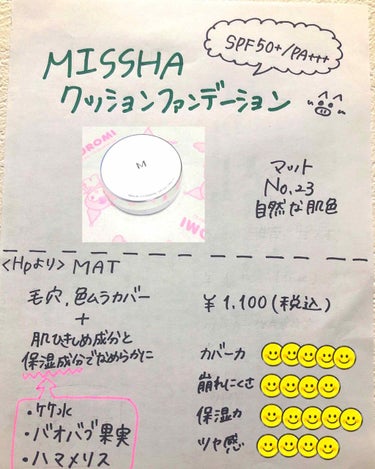 SPF50+/PA+++
MISSHA
クッションファンデーション
M
マット
No.23
自然な肌色
<Hpより> MAT
毛穴,色ムラカバー
+
肌ひきしめ成分と
保湿成分でなめらかに
¥1.100(税込)
カバー力
崩れにくさ
保湿力
ツヤ感
・バオバブ果実
・ハマメリス